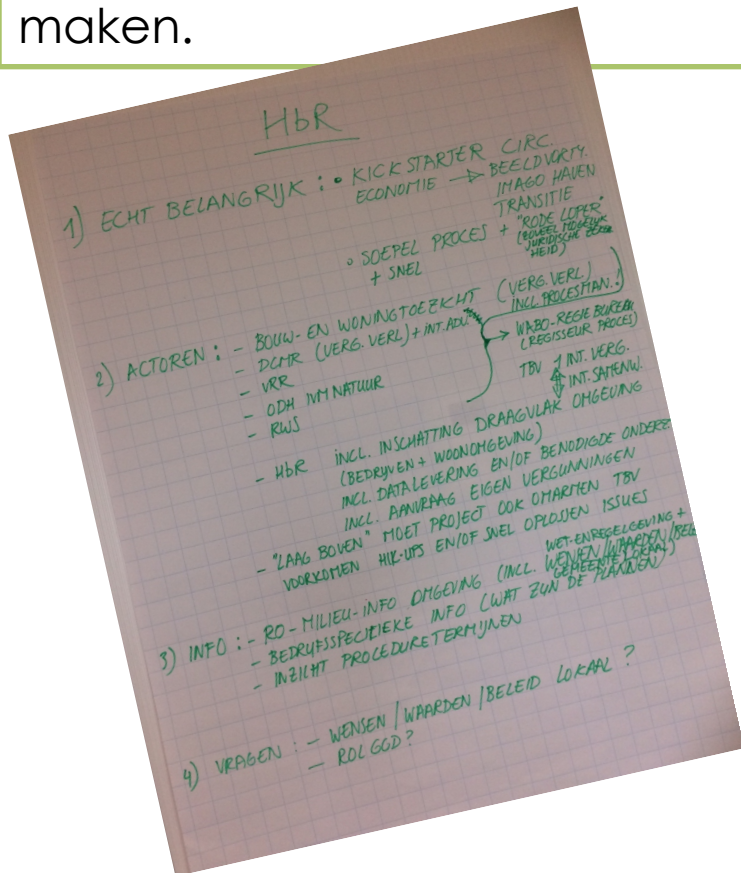 maken.
HbR
1) ECHT BELANGRIJK : • KICKSTARTER CIRC.
ECONOMIE → BEELDVORM.
IMAGO HAVEN
TRANSITIE
• SOEPEL PROCES + "RODE LOPER"
+ SNEL (ZOVEEL MOGELIJK
JURIDISCHE
HEID)
2) ACTOREN : - BOUW- EN WONINGTOEZICHT (VERG. VERL)
INCL. PROCESMAN.!
- DCMR (VERG. VERL) + INT. ADV. → WABO-REGIE BUREAU
(REGISSEUR PROCES)
- VRR
- ODH IVM NATUUR TBV INT. VERG.
INT. SAMENW.
- RWS
- HbR INCL. INSCHATTING DRAAGVLAK OMGEVING
(BEDRIJVEN + WOONOMGEVING)
INCL. DATALEVERING EN/OF BENODIGDE ONDERZ.
INCL. AANVRAAG EIGEN VERGUNNINGEN
- "LAAG BOVEN" MOET PROJECT OOK OMARMEN TBV
VOORKOMEN HIK-UPS EN/OF SNEL OPLOSSEN ISSUES
WET- EN REGELGEVING +
3) INFO : - RO-MILIEU-INFO OMGEVING (INCL. WENSEN/WAARDEN/BELE
GEMEENTE LOKAAL)
- BEDRIJFSSPECIFIEKE INFO (WAT ZIJN DE PLANNEN)
- INZICHT PROCEDURETERMIJNEN
4) VRAGEN : - WENSEN / WAARDEN / BELEID LOKAAL ?
- ROL GGD ?